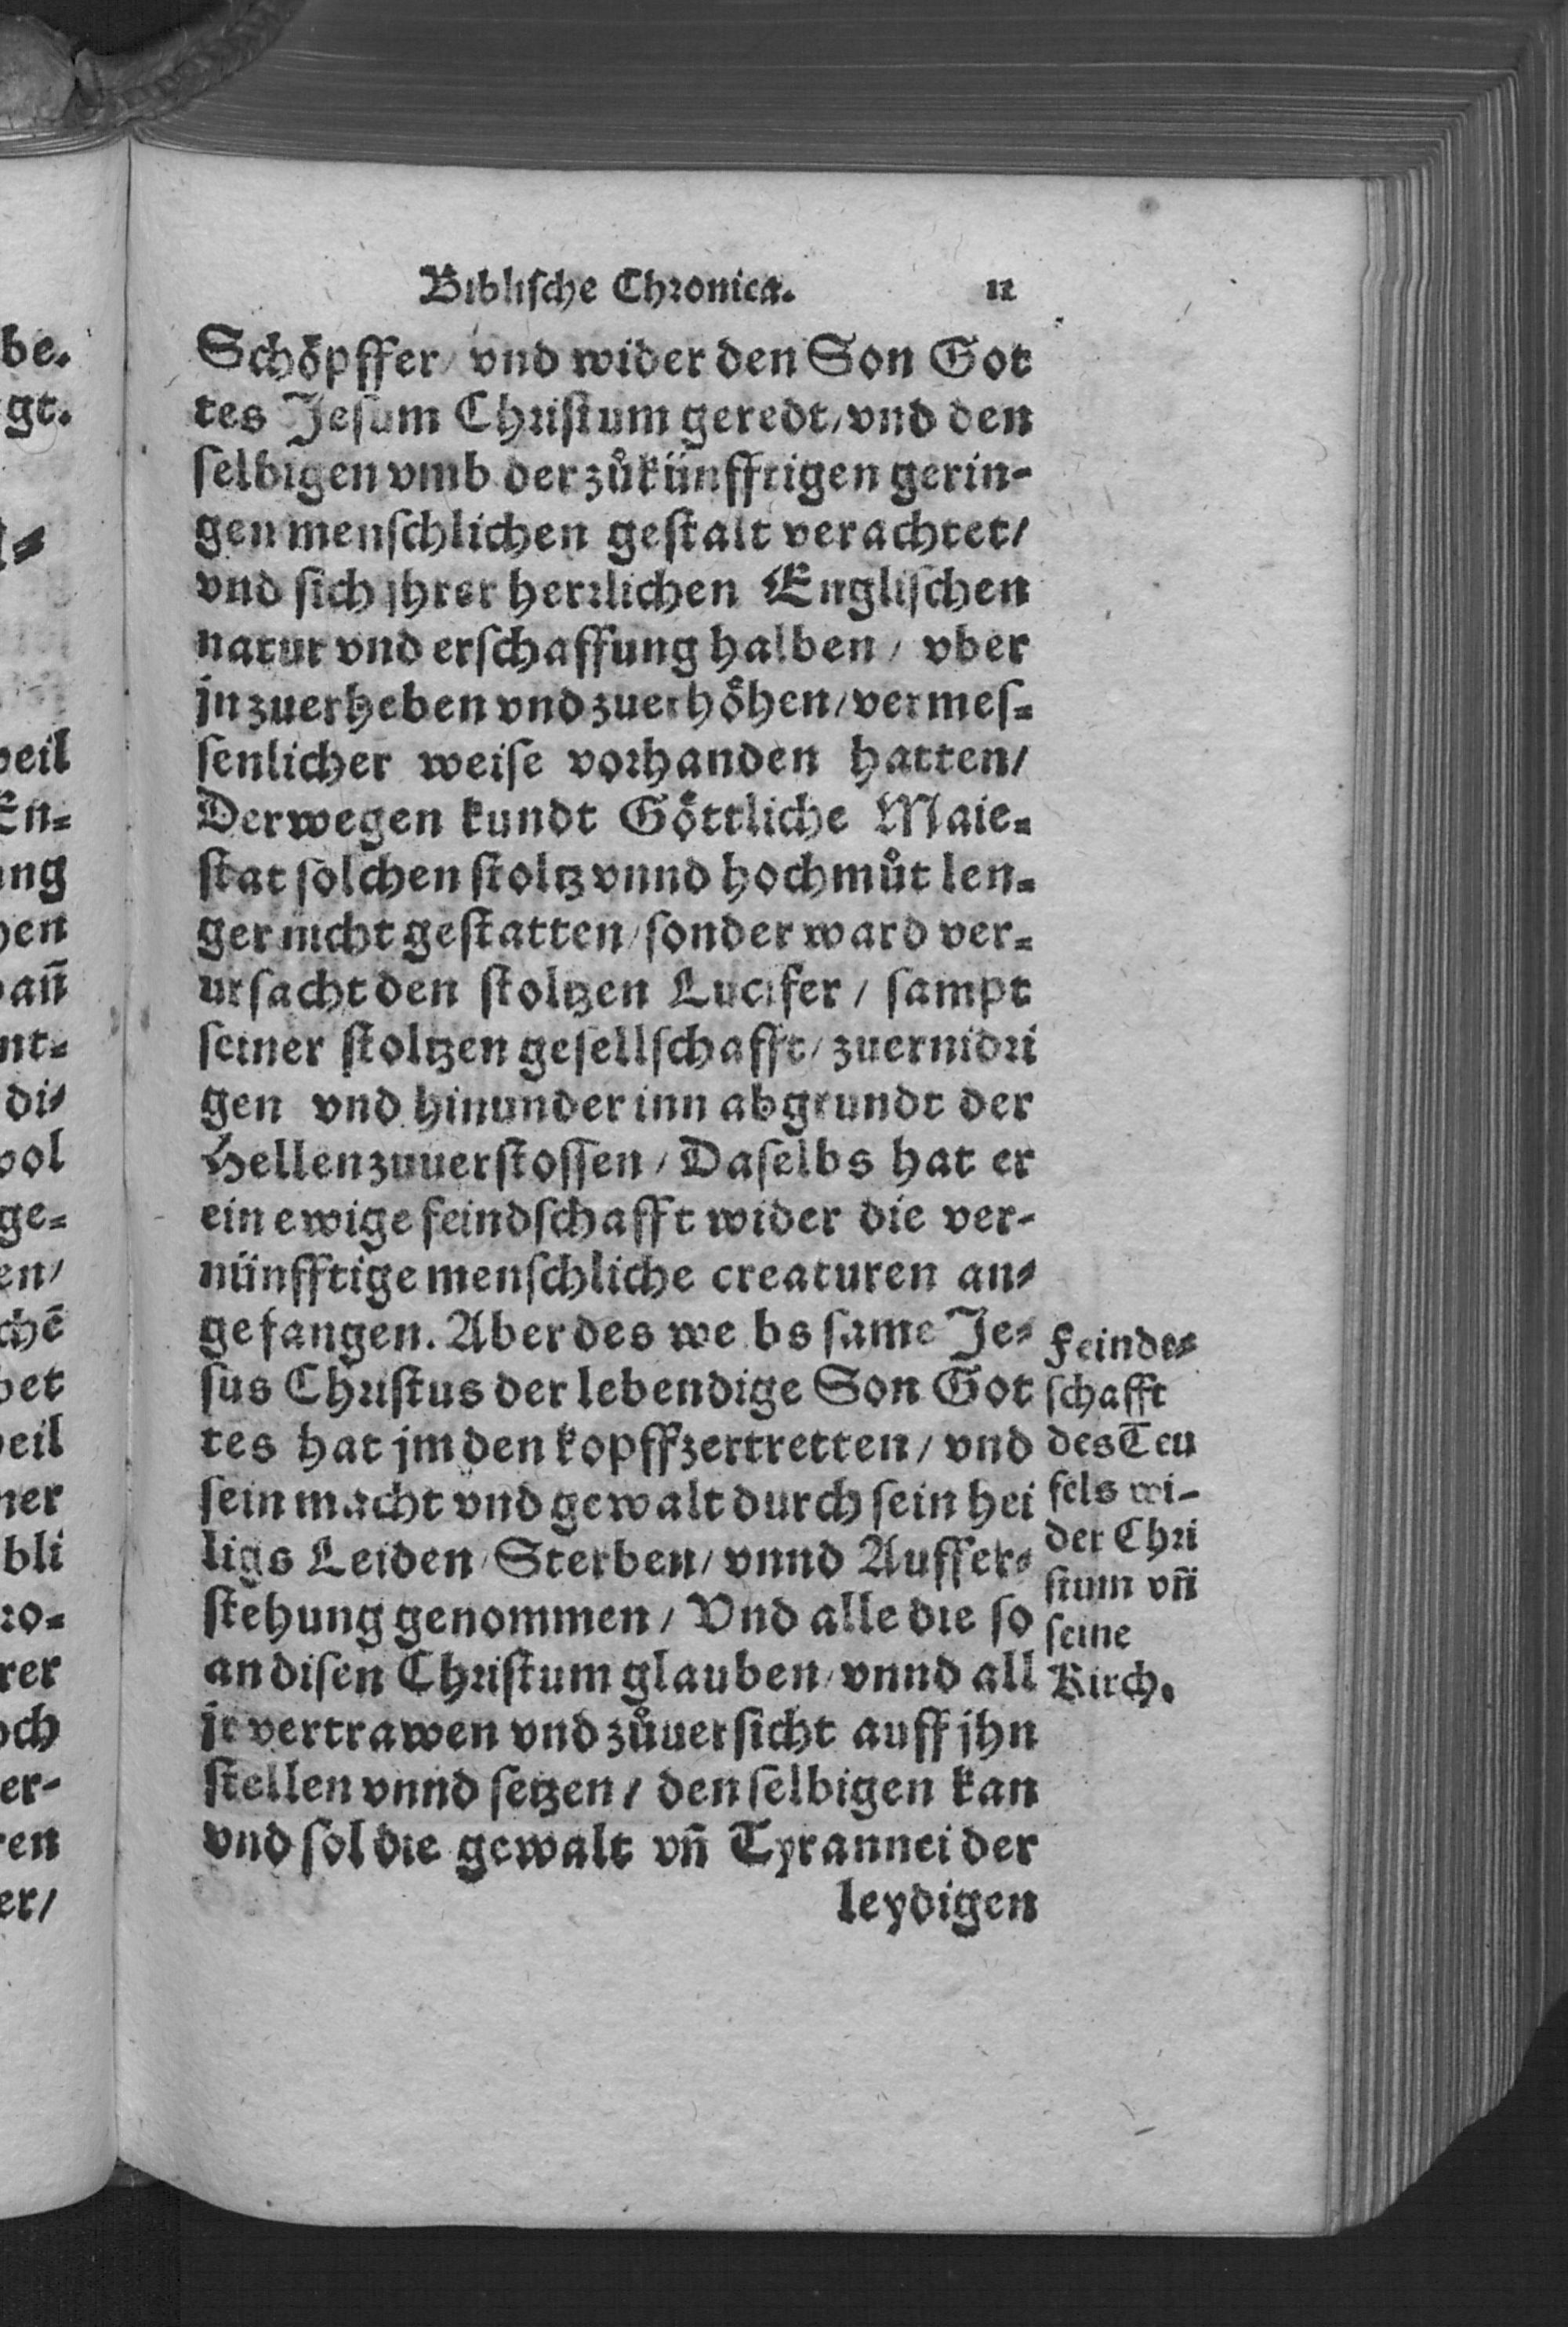 Biblische Chronica. 12
Schöpffer/ vnd wider den Son Got
tes Jesum Christum geredt/ vnd den
selbigen vmb der zůkünfftigen gerin-
gen menschlichen gestalt verachtet/
vnd sich jhrer herrlichen Englischen
natur vnd erschaffung halben/ vber
jn zuerheben vnd zuerhöhen/ vermes-
senlicher weise vorhanden hatten/
Derwegen kundt Göttliche Maie-
stat solchen stoltz vnnd hochmůt len-
ger nicht gestatten/ sonder ward ver-
ursacht den stoltzen Lucifer/ sampt
seiner stoltzen gesellschafft/ zuernidri
gen vnd hinunder inn abgrundt der
Hellen zuuerstossen/ Daselbs hat er
ein ewige feindschafft wider die ver-
nünfftige menschliche creaturen an-
gefangen. Aber des we bs same Je-
sus Christus der lebendige Son Got
tes hat jm den kopff zertretten/ vnd
sein macht vnd gewalt durch sein hei
ligs Leiden/ Sterben/ vnnd Auffer-
stehung genommen/ Vnd alle die so
an disen Christum glauben/ vnnd all
jr vertrawen vnd zůuersicht auff jhn
stellen vnnd setzen/ den selbigen kan
vnd sol die gewalt vñ Tyrannei der
leydigen
Feinde-
schafft
des Teu
fels wi-
der Chri
stum vñ
seine
Kirch.